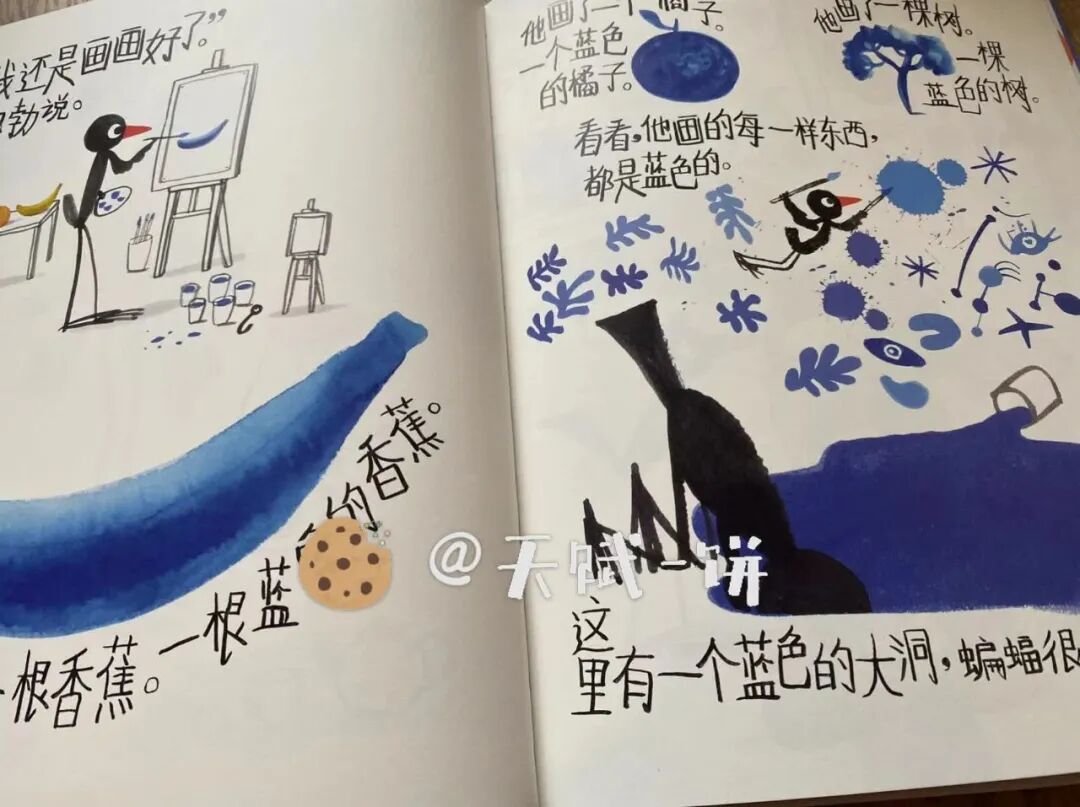 我还是画画好了。”
勃说。
根香蕉。一根蓝
的香蕉。
他画了一个橘子。
一个蓝色
的橘子。
他画了一棵树。
一棵
蓝色的树。
看看,他画的每一样东西,
都是蓝色的。
@天赋一饼
这
里有一个蓝色的大洞,蝙蝠很